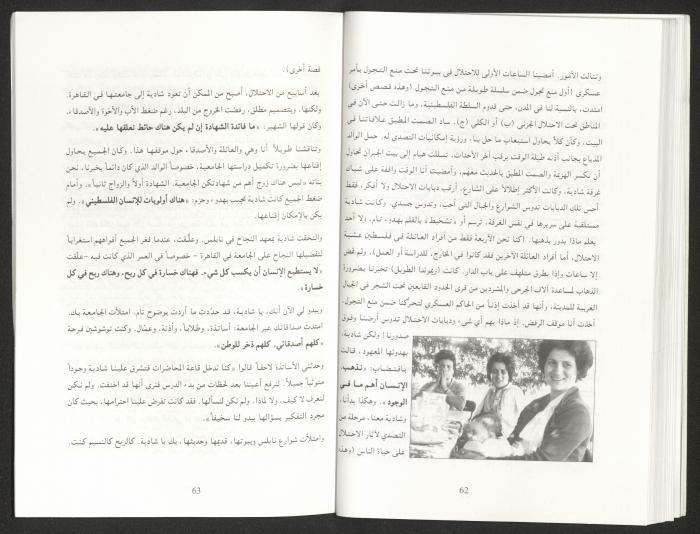 وتتالت الأمور. أمضينا الساعات الأولى للاحتلال في بيوتنا تحت منع التجول بأمر
عسكري (أول منع تجول ضمن سلسلة طويلة من منع التجول (وهذه قصص أخرى)
امتدت، بالنسبة لنا في المدن، حتى قدوم السلطة الفلسطينية، وما زالت حتى الآن في
المناطق تحت الاحتلال الجزئي (ب) أو الكلي (ج). ساد الصمت المطبق علاقاتنا في
البيت، وكأن كلاً يحاول استيعاب ما حل بنا، ورؤية إمكانيات التصدي له. حمل الوالد
المذياع بجانب أذنه طيلة الوقت يرقب آخر الأحداث. تسللت هيام إلى بيت الجيران تحاول
أن تكسر الهزيمة والصمت المطبق بالحديث معهم. وأمضيت أنا الوقت واقفة على شباك
غرفة شادية، وكانت الأكثر إطلالاً على الشارع، أرقب دبابات الاحتلال ولا أفكر، فقط
أحس تلك الدبابات تدوس الشوارع والجبال التي أحب، وتدوس جسدي. وكانت شادية
مستلقية على سريرها في نفس الغرفة، ترسم أو «تشخبط» بالقلم بهدوء تام. ولا أحد
يعلم ماذا يدور بذهنها. (كنا نحن الأربعة فقط من أفراد العائلة في فلسطين عشية
الاحتلال، أما أفراد العائلة الآخرين فقد كانوا في الخارج، للدراسة أو العمل). ولم تمض
إلا ساعات وإذا بطرق متلهف على باب الدار. كانت (ريموندا الطويل) تخبرنا بضرورة
الذهاب لمساعدة آلاف الجرحى والمشردين من قرى الحدود القابعين تحت الشجر في الجبال
الغربية للمدينة، وأنها قد أخذت إذناً من الحاكم العسكري لتحركنا ضمن منع التجول.
أخذت أنا موقف الرفض. إذ ماذا يهم أي شيء ودبابات الاحتلال تدوس أرضنا وفوق
صدورنا؟ ولكن شادية،
بهدوئها المعهود، قالت
باقتضاب: «نذهب.
الإنسان أهم ما في
الوجود». وهكذا بدأنا،
وشادية معنا، مرحلة من
التصدي لآثار الاحتلال
على حياة الناس (وهذه
62
قصة أخرى).
بعد أسابيع من الاحتلال، أصبح من الممكن أن تعود شادية إلى جامعتها في القاهرة.
ولكنها، وبتصميم مطلق، رفضت الخروج من البلد، رغم ضغط الأب والأخوة والأصدقاء.
وكان قولها الشهير: «ما فائدة الشهادة إن لم يكن هناك حائط نعلقها عليه».
وتناقشنا طويلاً أنا وهي والعائلة والأصدقاء حول موقفها هذا. وكان الجميع يحاول
إقناعها بضرورة تكميل دراستها الجامعية، خصوصاً الوالد الذي كان دائماً يخبرنا، نحن
بناته «ليس هناك زوج أهم من شهادتكن الجامعية. الشهادة أولاً والزواج ثانياً». وأمام
ضغط الجميع كانت شادية تجيب بهدوء وحزم: «هناك أولويات للإنسان الفلسطيني». ولم
يكن بالإمكان إقناعها.
والتحقت شادية بمعهد النجاح في نابلس. وعلّقت، عندما فغر الجميع أفواههم استغراباً
لتفضيلها النجاح على الجامعة في القاهرة - خصوصاً في العمر الذي كانت فيه - علّقت
«لا يستطيع الإنسان أن يكسب كل شيء. فهناك خسارة في كل ربح، وهناك ربح في كل
خسارة».
ويبدو لي الآن أنك، يا شادية، قد حدّدت ما أردت بوضوح تام. امتلأت الجامعة بك.
امتدت صداقاتك عبر الجامعة: أساتذة، وطلاباً، وأذنة، وعمّال. وكنت توشوشين فرحة
«كلهم أصدقائي. كلهم ذخر للوطن».
وحدثني الأساتذة لاحقاً قالوا «كنا ندخل قاعة المحاضرات فتشرق علينا شادية وجوداً
متوثباً جميلاً. لنرفع أعيننا بعد لحظات من بدء الدرس فنرى أنها قد اختفت. ولم نكن
لنعرف لا كيف، ولا لماذا. ولم نكن لنسألها. فقد كانت تفرض علينا احترامها، بحيث كان
مجرد التفكير بسؤالها يبدو لنا سخيفاً».
وامتلأت شوارع نابلس وبيوتها، قديمها وحديثها، بك يا شادية. كالريح كالنسيم كنت.
63